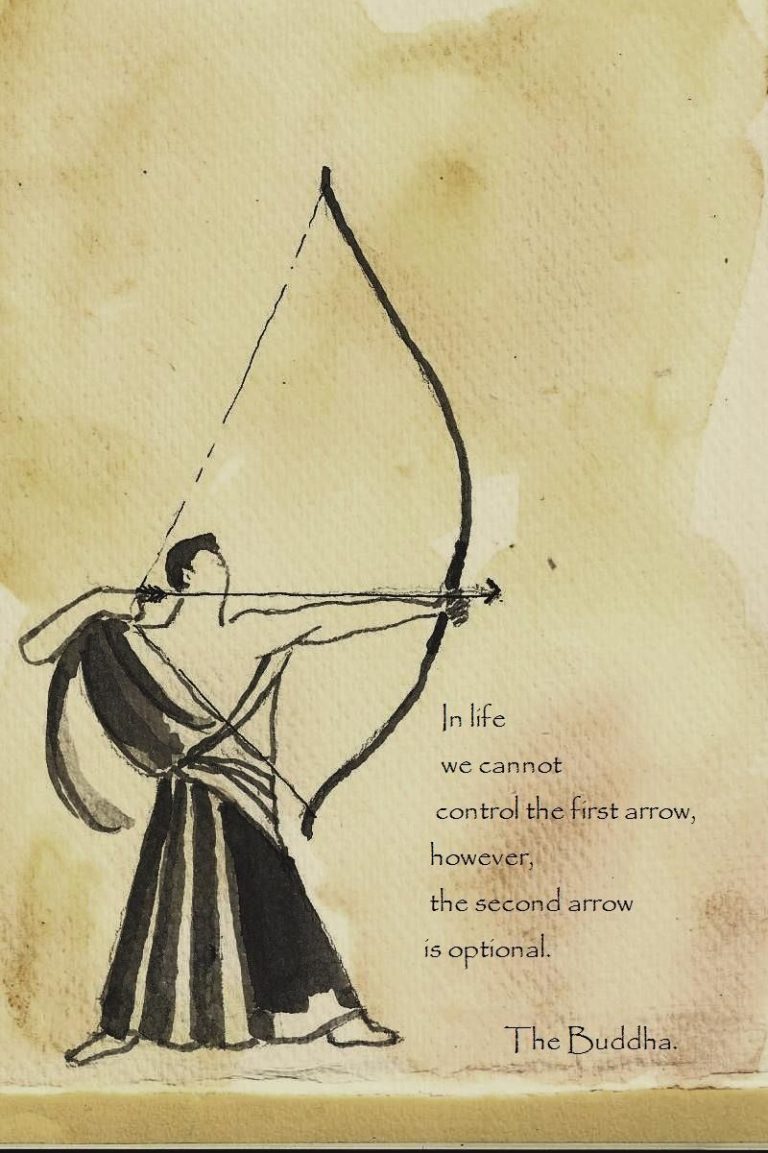 In life
we cannot
control the first arrow,
however,
the second arrow
is optional.
The Buddha.